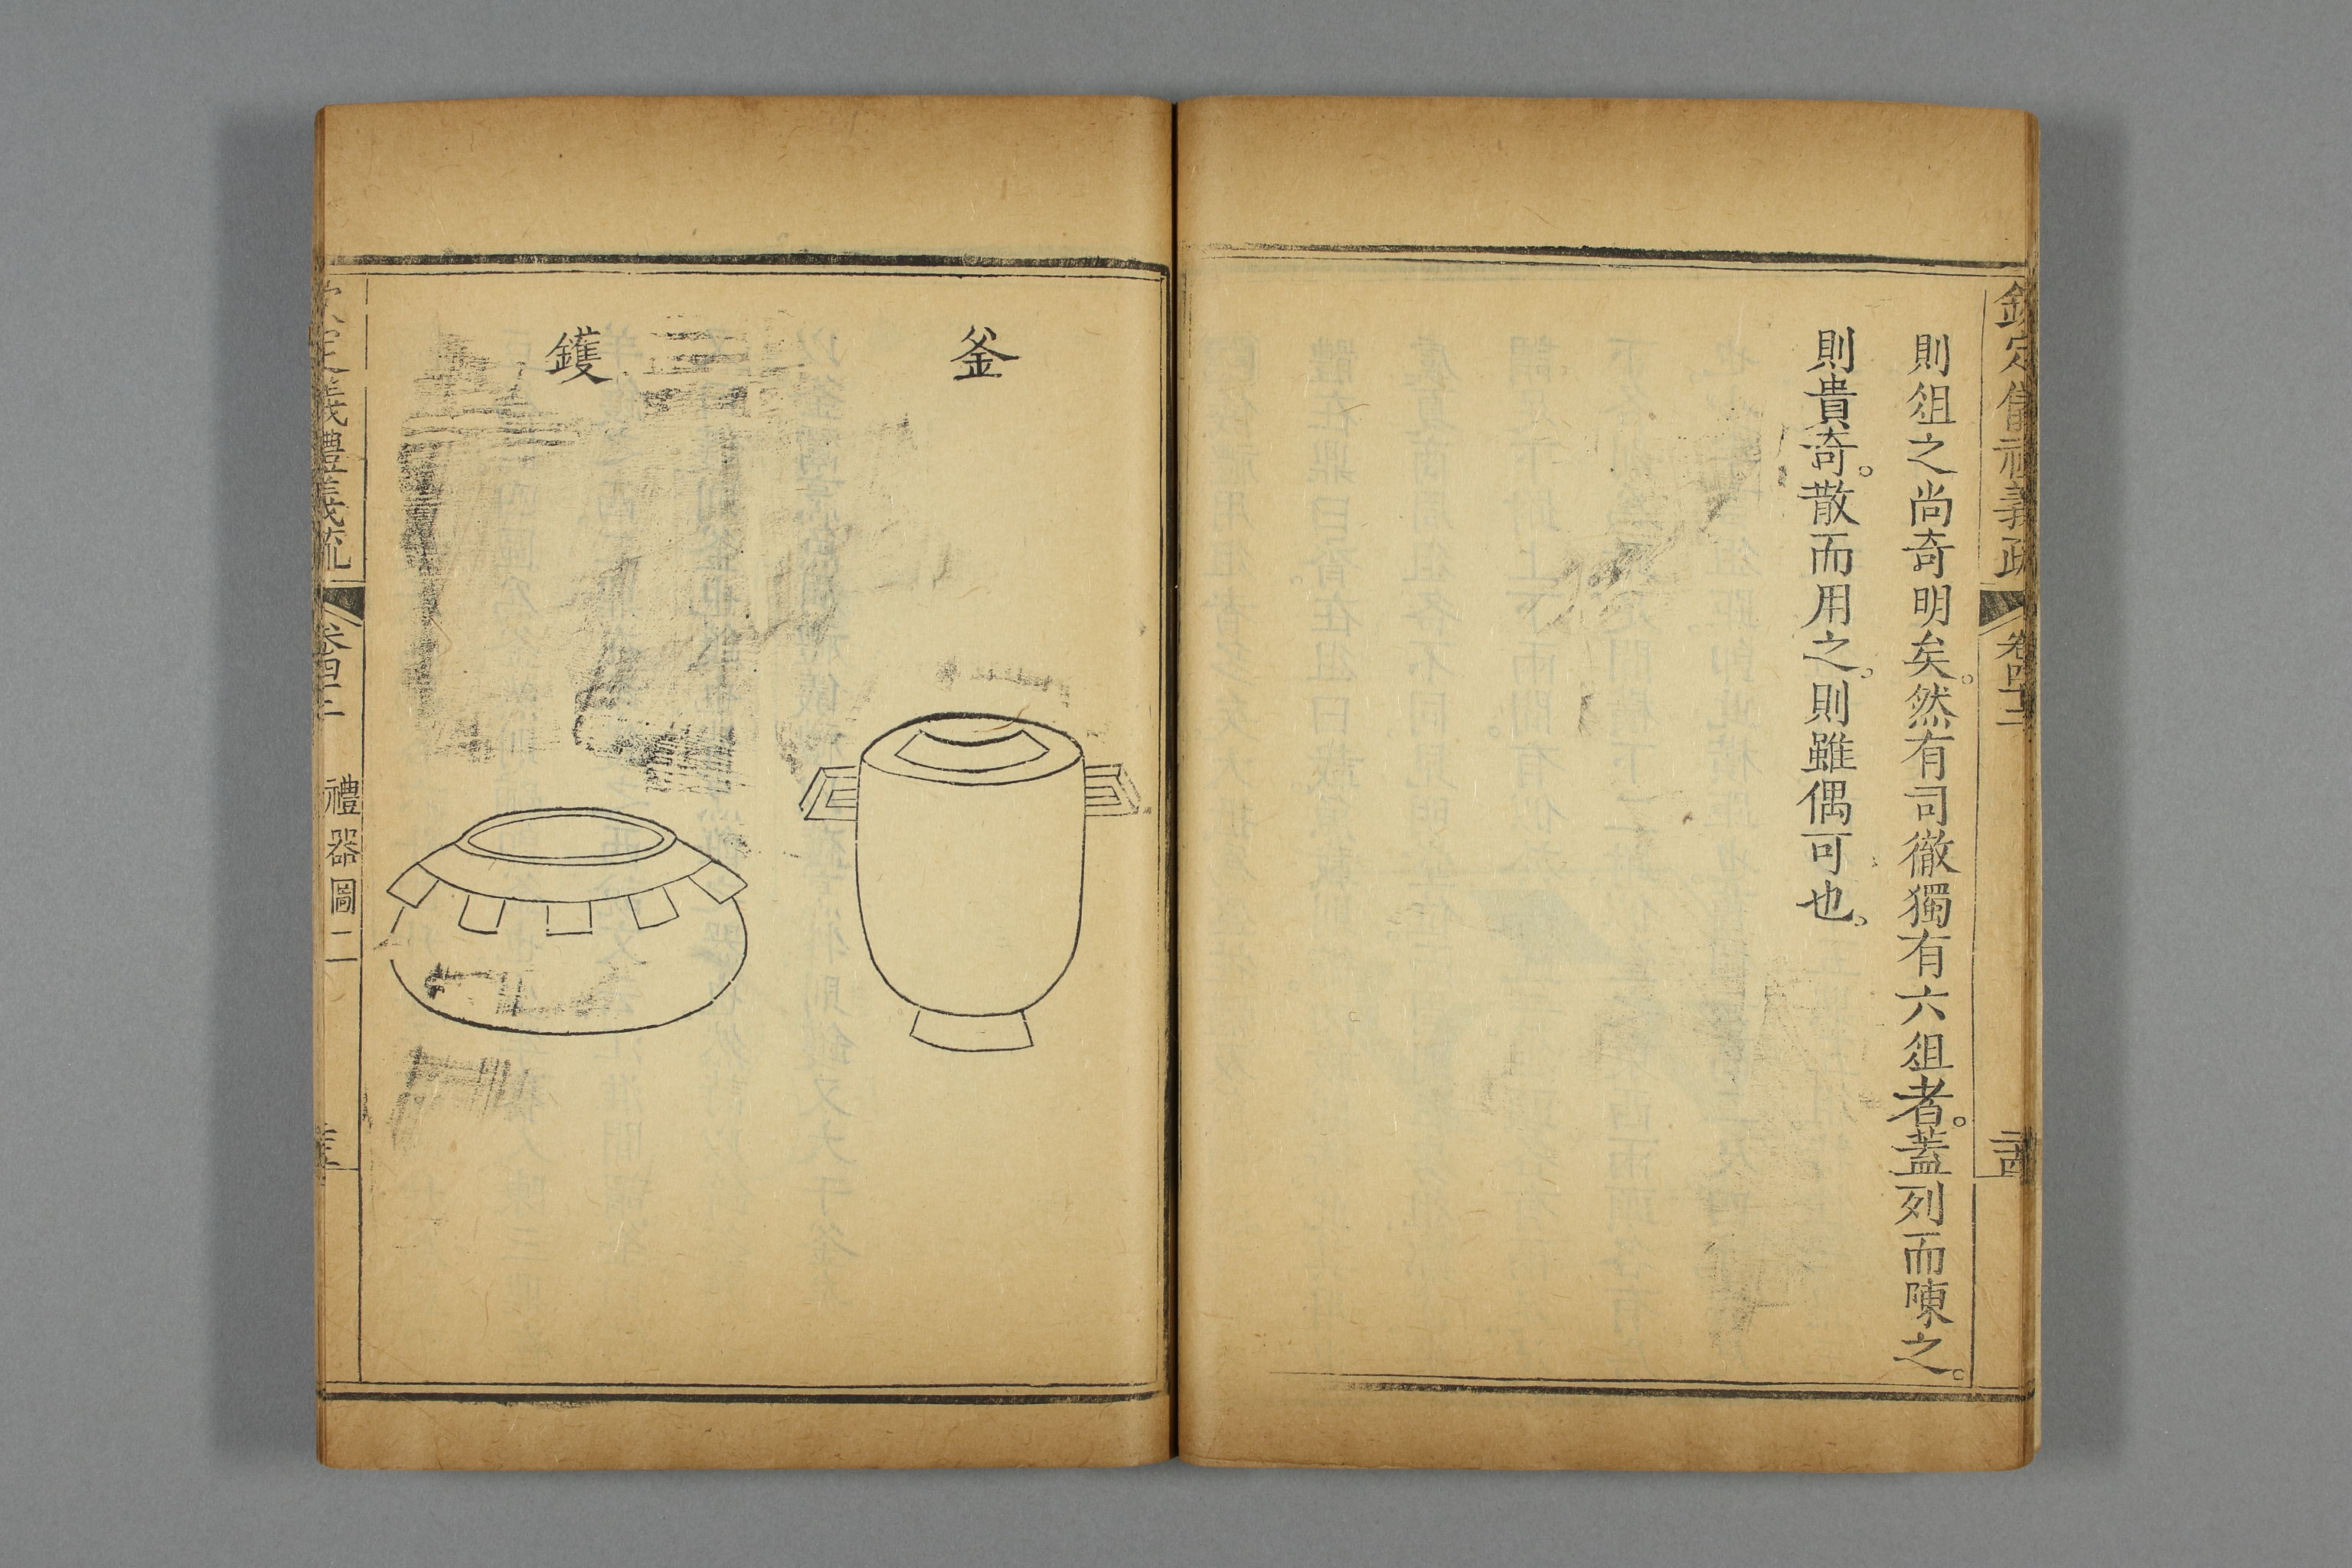 欽定儀禮義疏 卷四十二 
則俎之尚奇明矣。然有司徹獨有六俎者。蓋列而陳之。
則貴奇。散而用之。則雖偶可也。
釜
鑊
定儀禮義疏 卷四十二 禮器圖二